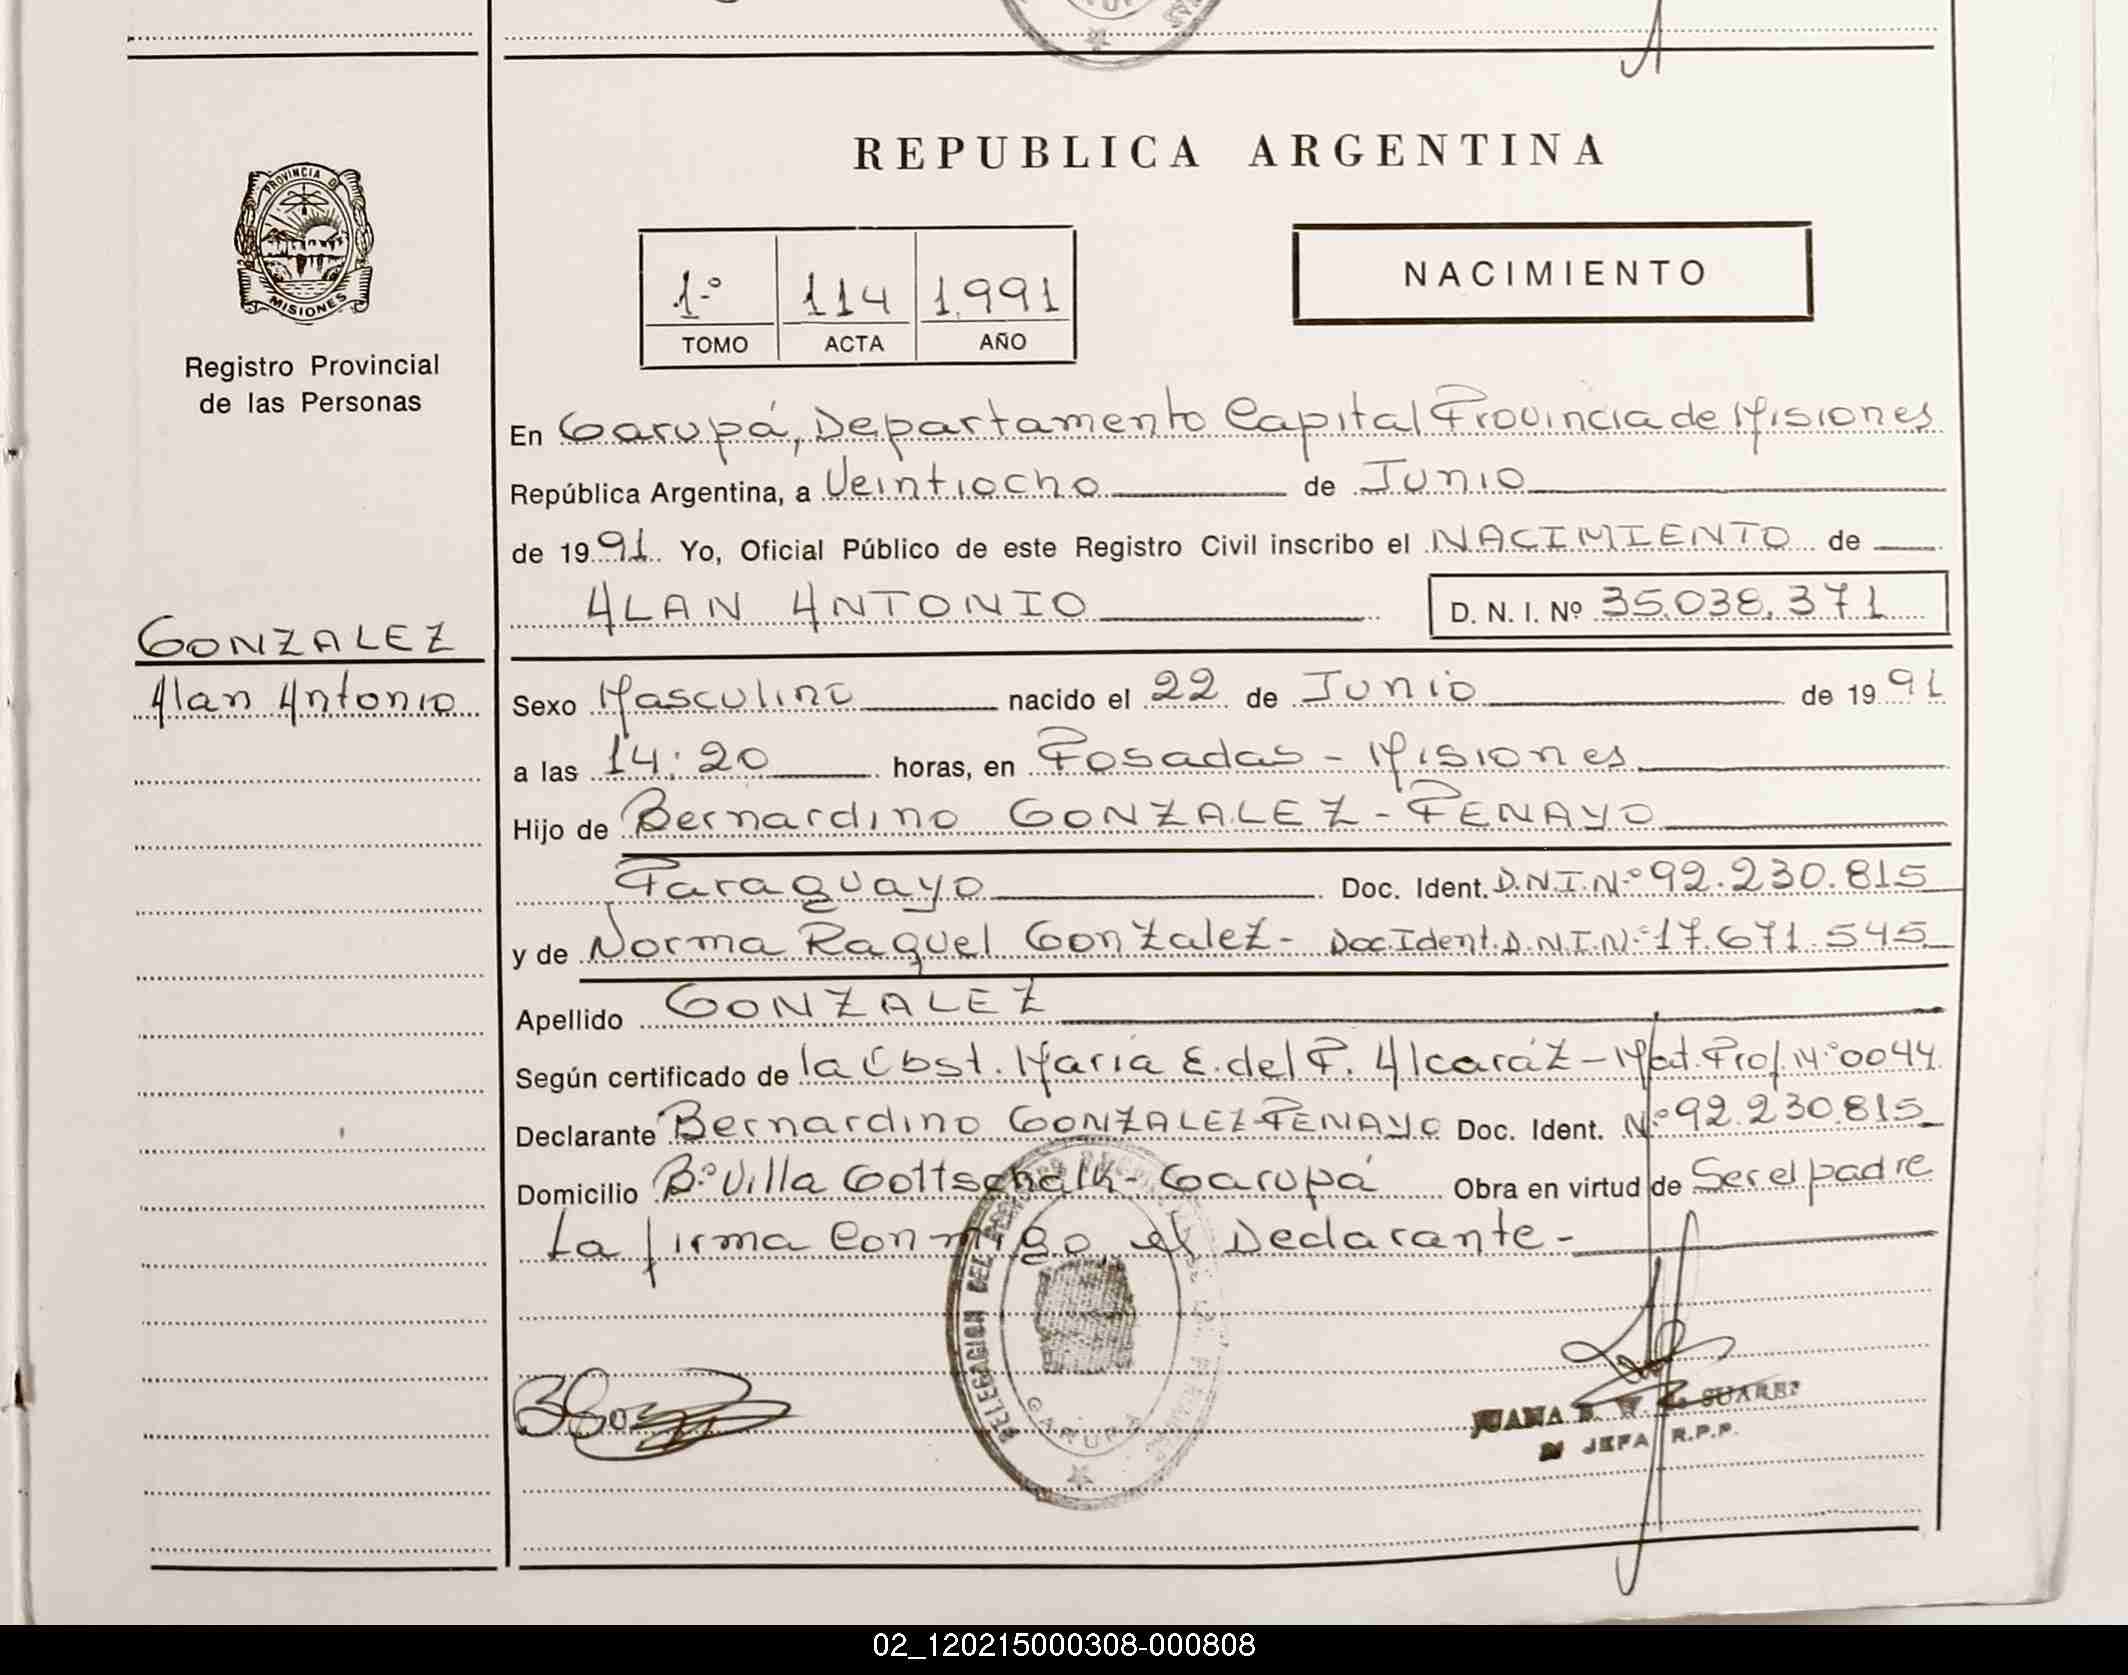 REPUBLICA ARGENTINA
PROVINCIA D
MISIONES
Registro Provincial
de las Personas
1º 114 1.991
TOMO ACTA AÑO
NACIMIENTO
En Garupá, Departamento Capital Provincia de Misiones
República Argentina, a Veintiocho de Junio
de 1991 Yo, Oficial Público de este Registro Civil inscribo el NACIMIENTO de
ALAN ANTONIO D. N. I. Nº 35.038.371
GONZALEZ
Alan Antonio
Sexo Masculino nacido el 22 de Junio de 1991
a las 14:20 horas, en Posadas - Misiones
Hijo de Bernardino GONZALEZ - PENAYO
Paraguayo Doc. Ident. D.N.I.Nº 92.230.815
y de Norma Raquel Gonzalez - Doc.Ident.D.N.I.Nº 17.671.545
Apellido GONZALEZ
Según certificado de la Obst. María E. del P. Alcaráz - Mat. Prof. Nº 0044
Declarante Bernardino GONZALEZ-PENAYO Doc. Ident. Nº 92.230.815
Domicilio Bº Villa Gottschalk - Garupá Obra en virtud de Ser el padre
La firma Conmigo, el Declarante -
DELEGACION DEL
GARUPA
JUANA SUAREZ
JEFA R.P.P.
02_120215000308-000808